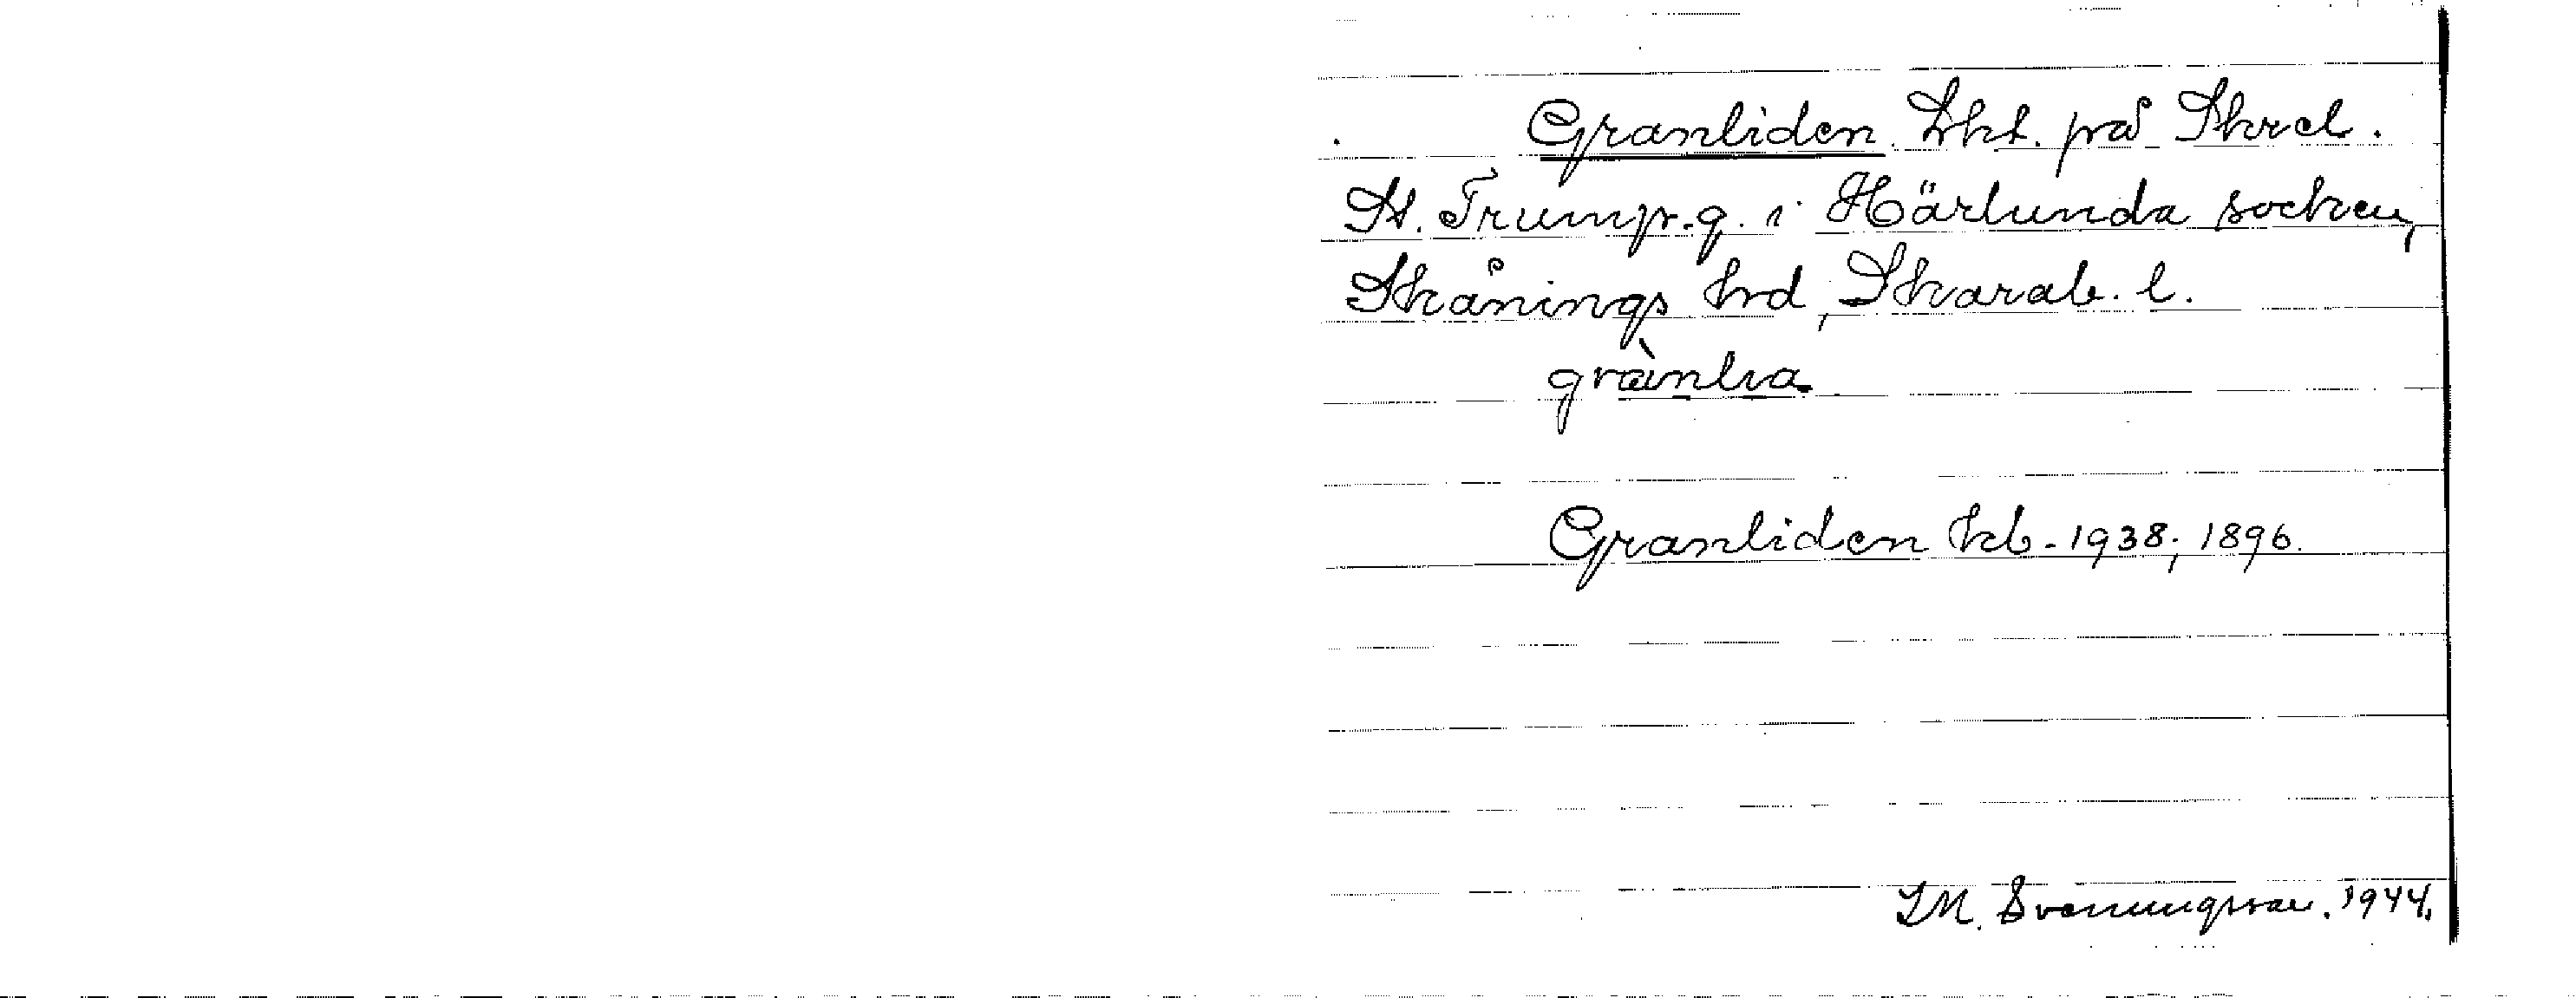 Granliden. Lht. på Skrel.
St. Trump.g. i Härlunda socken,
Skånings hrd, Skarab. l.
grànlia
Granliden kb. 1938; 1896.
I.M. Svenungsson. 1944.